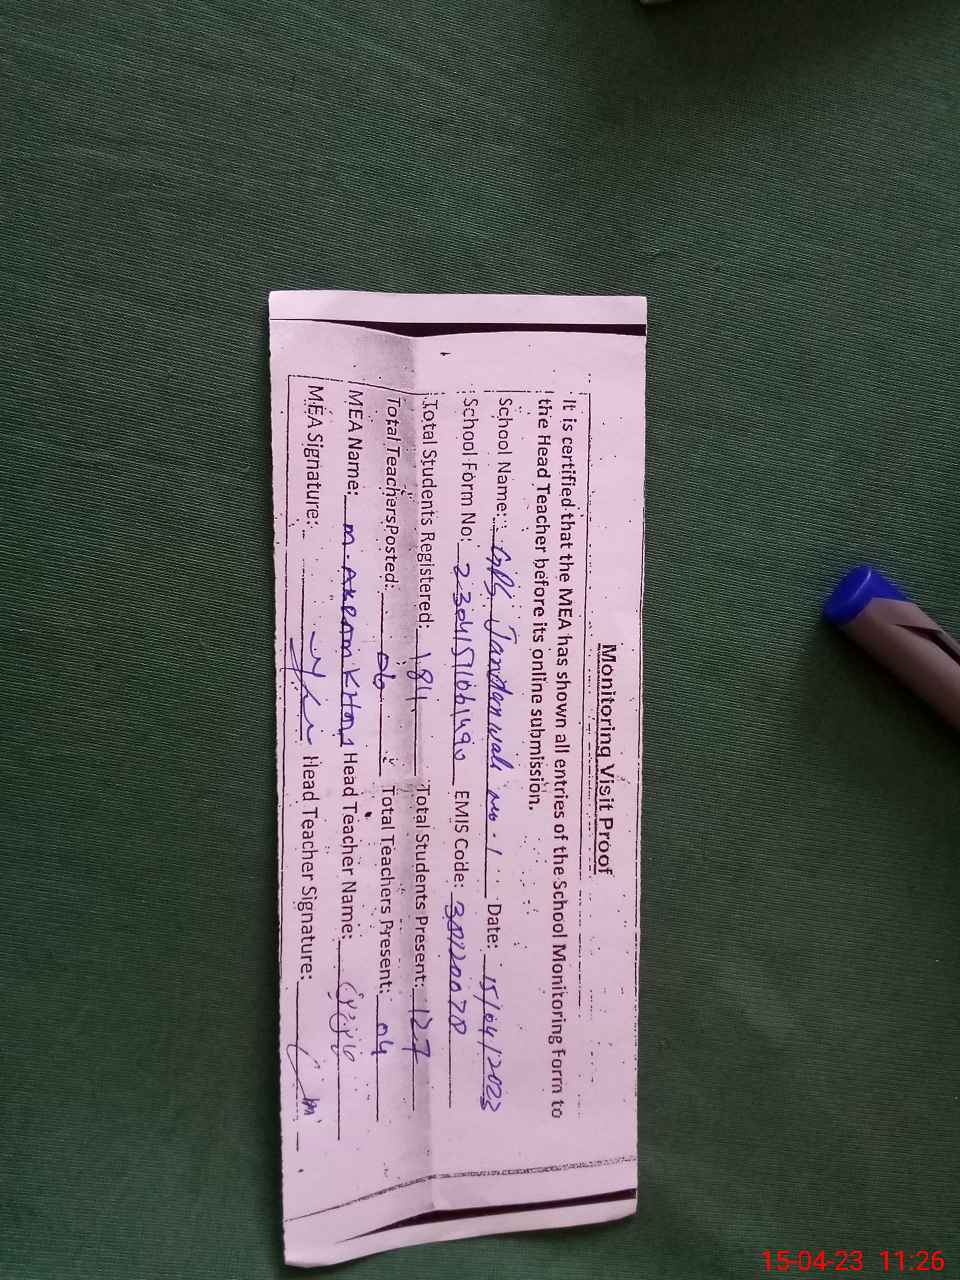 Monitoring Visit Proof
It is certified that the MEA has shown all entries of the School Monitoring Form to
the Head Teacher before its online submission.
School Name: GPS Jandanwali no. 1 Date: 15/04/2023
School Form No: EMIS Code:
Total Students Registered: 181 Total Students Present: 127
Total Teachers Posted: 06 Total Teachers Present: 04
MEA Name: M. AKRAM KHAN Head Teacher Name:
MEA Signature: Head Teacher Signature:
15-04-23 11:26